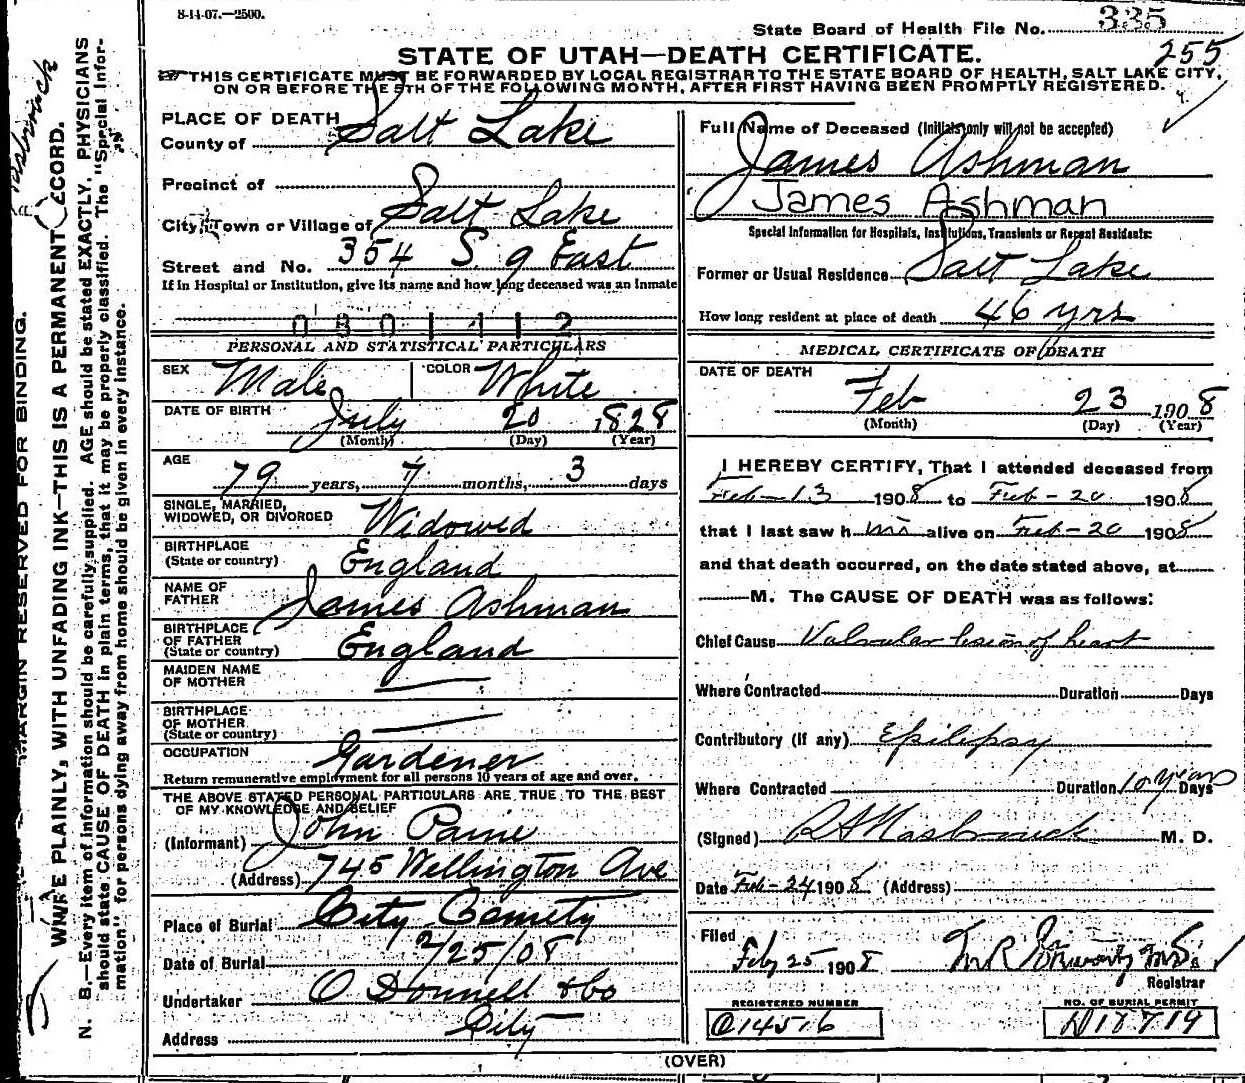 8-14-07.—2500.
State Board of Health File No. 335
STATE OF UTAH—DEATH CERTIFICATE.
255
THIS CERTIFICATE MUST BE FORWARDED BY LOCAL REGISTRAR TO THE STATE BOARD OF HEALTH, SALT LAKE CITY,
ON OR BEFORE THE 5TH OF THE FOLLOWING MONTH, AFTER FIRST HAVING BEEN PROMPTLY REGISTERED.
PLACE OF DEATH
County of Salt Lake
Precinct of
City, Town or Village of Salt Lake
Street and No. 354 S. 9 East
If in Hospital or Institution, give its name and how long deceased was an inmate
PERSONAL AND STATISTICAL PARTICULARS
SEX Male COLOR White
DATE OF BIRTH July 20 1828
(Month) (Day) (Year)
AGE 79 years, 7 months, 3 days
SINGLE, MARRIED,
WIDOWED, OR DIVORCED Widowed
BIRTHPLACE
(State or country) England
NAME OF
FATHER James Ashman
BIRTHPLACE
OF FATHER
(State or country) England
MAIDEN NAME
OF MOTHER
BIRTHPLACE
OF MOTHER
(State or country)
OCCUPATION Gardener
Return remunerative employment for all persons 10 years of age and over.
THE ABOVE STATED PERSONAL PARTICULARS ARE TRUE TO THE BEST
OF MY KNOWLEDGE AND BELIEF
(Informant) John Paine
(Address) 745 Wellington Ave
Place of Burial City Cemety
Date of Burial 2/25/08
Undertaker O Donnell & Co
Address City
Full Name of Deceased (Initials only will not be accepted)
James Ashman
James Ashman
Special Information for Hospitals, Institutions, Transients or Recent Residents:
Former or Usual Residence Salt Lake
How long resident at place of death 46 yrs
MEDICAL CERTIFICATE OF DEATH
DATE OF DEATH
Feb 23 1908
(Month) (Day) (Year)
I HEREBY CERTIFY, That I attended deceased from
Feb-13 1908 to Feb-20 1908
that I last saw him alive on Feb-20 1908
and that death occurred, on the date stated above, at
M. The CAUSE OF DEATH was as follows:
Chief Cause Valvular lesion of heart
Where Contracted Duration Days
Contributory (if any) Epilepsy
Where Contracted Duration 10 years Days
(Signed) R A Hasbrouck M. D.
Date Feb-24 1908 (Address)
Filed
Feby 25 1908
Registrar
REGISTERED NUMBER
O14516
NO. OF BURIAL PERMIT
D18719
(OVER)
MARGIN RESERVED FOR BINDING.
WRITE PLAINLY, WITH UNFADING INK—THIS IS A PERMANENT RECORD.
N. B.—Every item of information should be carefully supplied. AGE should be stated EXACTLY. PHYSICIANS
should state CAUSE OF DEATH in plain terms, that it may be properly classified. The "Special Infor-
mation" for persons dying away from home should be given in every instance.